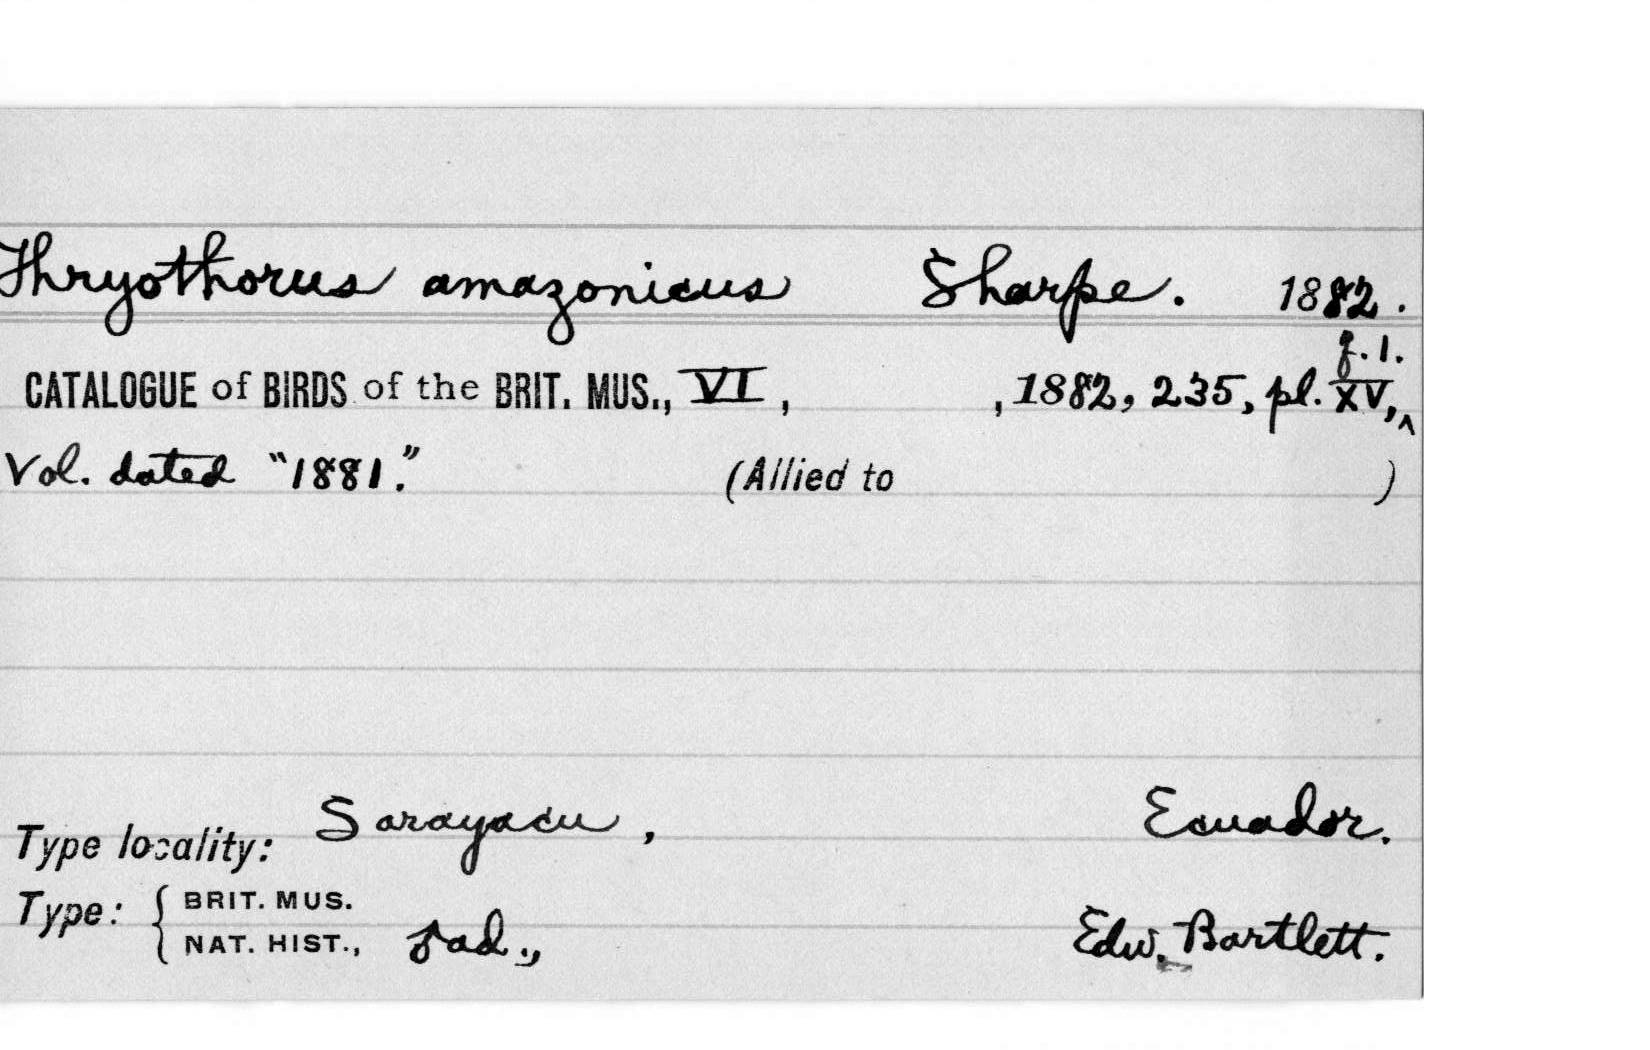 Thryothorus amazonicus Sharpe. 1882.
f.1.
CATALOGUE of BIRDS of the BRIT. MUS., VI, , 1882, 235, pl. XV,^
Vol. dated "1881."
(Allied to )
Type locality: Sarayacu, Ecuador.
Type: { BRIT. MUS.
NAT. HIST., ad., Edw. Bartlett.